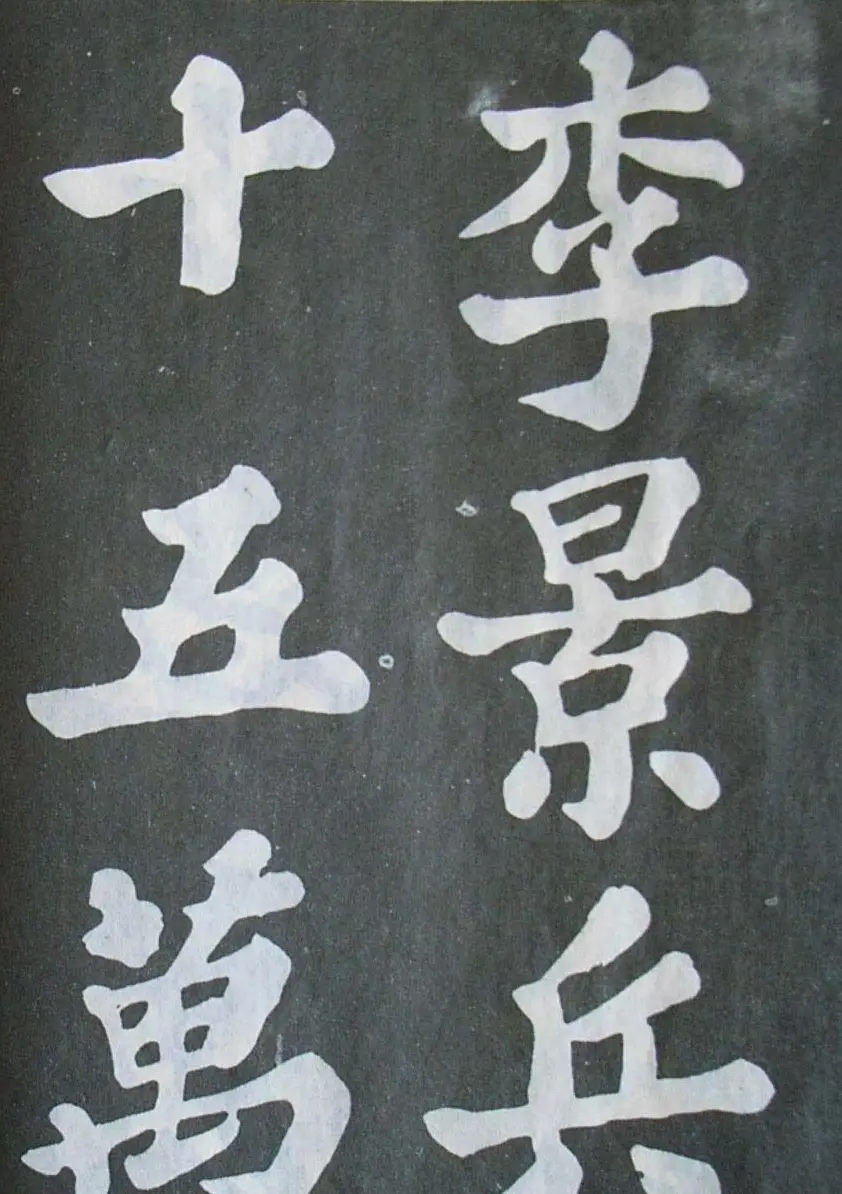 李景兵
十五萬